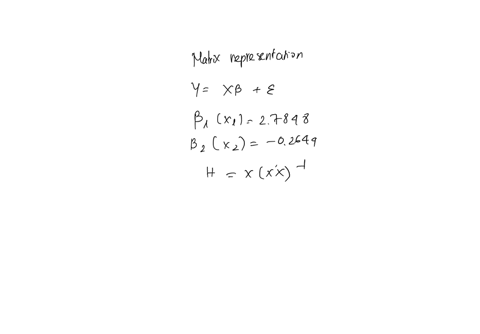 Matrix representation
Y = Xβ + ε
β₁ (x₁) = 2.7848
β₂ (x₂) = -0.2649
H = X (X'X)⁻¹